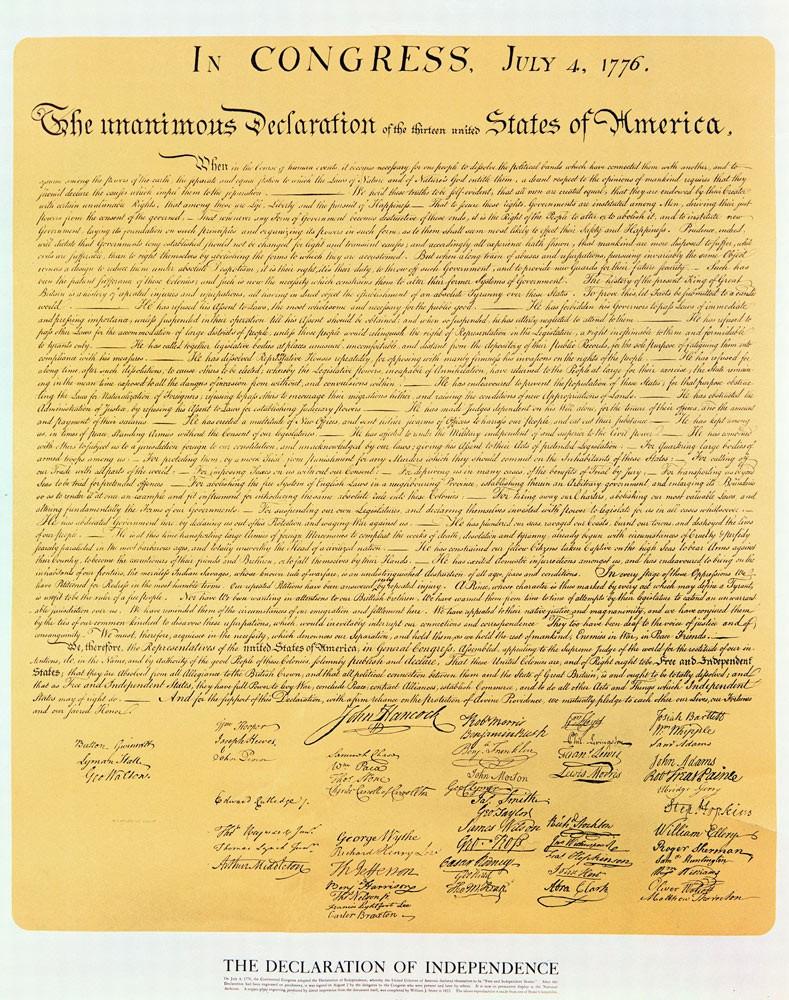 In CONGRESS, July 4, 1776.
The unanimous Declaration of the thirteen united States of America,
When in the Course of human events, it becomes necessary for one people to dissolve the political bands which have connected them with another, and to
assume among the powers of the earth, the separate and equal station to which the Laws of Nature and of Nature's God entitle them, a decent respect to the opinions of mankind requires that they
should declare the causes which impel them to the separation. — We hold these truths to be self-evident, that all men are created equal, that they are endowed by their Creator
with certain unalienable Rights, that among these are Life, Liberty and the pursuit of Happiness. — That to secure these rights, Governments are instituted among Men, deriving their just
powers from the consent of the governed, — That whenever any Form of Government becomes destructive of these ends, it is the Right of the People to alter or to abolish it, and to institute new
Government, laying its foundation on such principles and organizing its powers in such form, as to them shall seem most likely to effect their Safety and Happiness. Prudence, indeed,
will dictate that Governments long established should not be changed for light and transient causes; and accordingly all experience hath shewn, that mankind are more disposed to suffer, while
evils are sufferable, than to right themselves by abolishing the forms to which they are accustomed. But when a long train of abuses and usurpations, pursuing invariably the same Object
evinces a design to reduce them under absolute Despotism, it is their right, it is their duty, to throw off such Government, and to provide new Guards for their future security. — Such has
been the patient sufferance of these Colonies; and such is now the necessity which constrains them to alter their former Systems of Government. The history of the present King of Great
Britain is a history of repeated injuries and usurpations, all having in direct object the establishment of an absolute Tyranny over these States. To prove this, let Facts be submitted to a candid
world. — He has refused his Assent to Laws, the most wholesome and necessary for the public good. — He has forbidden his Governors to pass Laws of immediate
and pressing importance, unless suspended in their operation till his Assent should be obtained; and when so suspended, he has utterly neglected to attend to them. — He has refused to
pass other Laws for the accommodation of large districts of people, unless those people would relinquish the right of Representation in the Legislature, a right inestimable to them and formidable
to tyrants only. — He has called together legislative bodies at places unusual, uncomfortable, and distant from the depository of their Public Records, for the sole purpose of fatiguing them into
compliance with his measures. — He has dissolved Representative Houses repeatedly, for opposing with manly firmness his invasions on the rights of the people. — He has refused for
a long time, after such dissolutions, to cause others to be elected; whereby the Legislative powers, incapable of Annihilation, have returned to the People at large for their exercise; the State remain-
ing in the mean time exposed to all the dangers of invasion from without, and convulsions within. — He has endeavoured to prevent the population of these States; for that purpose obstruc-
ting the Laws for Naturalization of Foreigners; refusing to pass others to encourage their migrations hither, and raising the conditions of new Appropriations of Lands. — He has obstructed the
Administration of Justice, by refusing his Assent to Laws for establishing Judiciary powers. — He has made Judges dependent on his Will alone, for the tenure of their offices, and the amount
and payment of their salaries. — He has erected a multitude of New Offices, and sent hither swarms of Officers to harrass our People, and eat out their substance. — He has kept among
us, in times of peace, Standing Armies without the Consent of our legislatures. — He has affected to render the Military independent of and superior to the Civil power. — He has combined
with others to subject us to a jurisdiction foreign to our constitution, and unacknowledged by our laws; giving his Assent to their Acts of pretended Legislation: — For Quartering large bodies of
armed troops among us: — For protecting them, by a mock Trial, from Punishment for any Murders which they should commit on the Inhabitants of these States: — For cutting off
our Trade with all parts of the world: — For imposing Taxes on us without our Consent: — For depriving us in many cases, of the benefits of Trial by Jury: — For transporting us beyond
Seas to be tried for pretended offences — For abolishing the free System of English Laws in a neighbouring Province, establishing therein an Arbitrary government, and enlarging its Boundaries
so as to render it at once an example and fit instrument for introducing the same absolute rule into these Colonies: — For taking away our Charters, abolishing our most valuable Laws, and
altering fundamentally the Forms of our Governments: — For suspending our own Legislatures, and declaring themselves invested with power to legislate for us in all cases whatsoever. —
He has abdicated Government here, by declaring us out of his Protection and waging War against us. — He has plundered our seas, ravaged our Coasts, burnt our towns, and destroyed the lives
of our people. — He is at this time transporting large Armies of foreign Mercenaries to compleat the works of death, desolation and tyranny, already begun with circumstances of Cruelty & perfidy
scarcely paralleled in the most barbarous ages, and totally unworthy the Head of a civilized nation. — He has constrained our fellow Citizens taken Captive on the high Seas to bear Arms against
their Country, to become the executioners of their friends and Brethren, or to fall themselves by their Hands. — He has excited domestic insurrections amongst us, and has endeavoured to bring on the
inhabitants of our frontiers, the merciless Indian Savages, whose known rule of warfare, is an undistinguished destruction of all ages, sexes and conditions. In every stage of these Oppressions We
have Petitioned for Redress in the most humble terms: Our repeated Petitions have been answered only by repeated injury. A Prince, whose character is thus marked by every act which may define a Tyrant,
is unfit to be the ruler of a free people. Nor have We been wanting in attentions to our Brittish brethren. We have warned them from time to time of attempts by their legislature to extend an unwarrant-
able jurisdiction over us. We have reminded them of the circumstances of our emigration and settlement here. We have appealed to their native justice and magnanimity, and we have conjured them
by the ties of our common kindred to disavow these usurpations, which, would inevitably interrupt our connections and correspondence. They too have been deaf to the voice of justice and of
consanguinity. We must, therefore, acquiesce in the necessity, which denounces our Separation, and hold them, as we hold the rest of mankind, Enemies in War, in Peace Friends. —
We, therefore, the Representatives of the united States of America, in General Congress, Assembled, appealing to the Supreme Judge of the world for the rectitude of our in-
tentions, do, in the Name, and by Authority of the good People of these Colonies, solemnly publish and declare, That these United Colonies are, and of Right ought to be Free and Independent
States; that they are Absolved from all Allegiance to the British Crown, and that all political connection between them and the State of Great Britain, is and ought to be totally dissolved; and
that as Free and Independent States, they have full Power to levy War, conclude Peace, contract Alliances, establish Commerce, and to do all other Acts and Things which Independent
States may of right do. — And for the support of this Declaration, with a firm reliance on the protection of divine Providence, we mutually pledge to each other our Lives, our Fortunes
and our sacred Honor.
Button Gwinnett
Lyman Hall
Geo Walton.
Wm Hooper
Joseph Hewes,
John Penn
Edward Rutledge
Thos Heyward Junr.
Thomas Lynch Junr.
Arthur Middleton
John Hancock
Samuel Chase
Wm Paca
Thos Stone
Charles Carroll of Carrollton
George Wythe
Richard Henry Lee
Th Jefferson
Benj Harrison
Thos Nelson jr.
Francis Lightfoot Lee
Carter Braxton
Robt Morris
Benjamin Rush
Benj. Franklin
John Morton
Geo Clymer
Jas. Smith
Geo. Taylor
James Wilson
Geo. Ross
Caesar Rodney
Geo Read
Tho M:Kean
Wm Floyd
Phil. Livingston
Frans. Lewis
Lewis Morris
Richd. Stockton
Jno Witherspoon
Fras. Hopkinson
John Hart
Abra Clark
Josiah Bartlett
Wm Whipple
Saml Adams
John Adams
Robt Treat Paine
Elbridge Gerry
Step. Hopkins
William Ellery
Roger Sherman
Saml Huntington
Wm Williams
Oliver Wolcott
Matthew Thornton
THE DECLARATION OF INDEPENDENCE